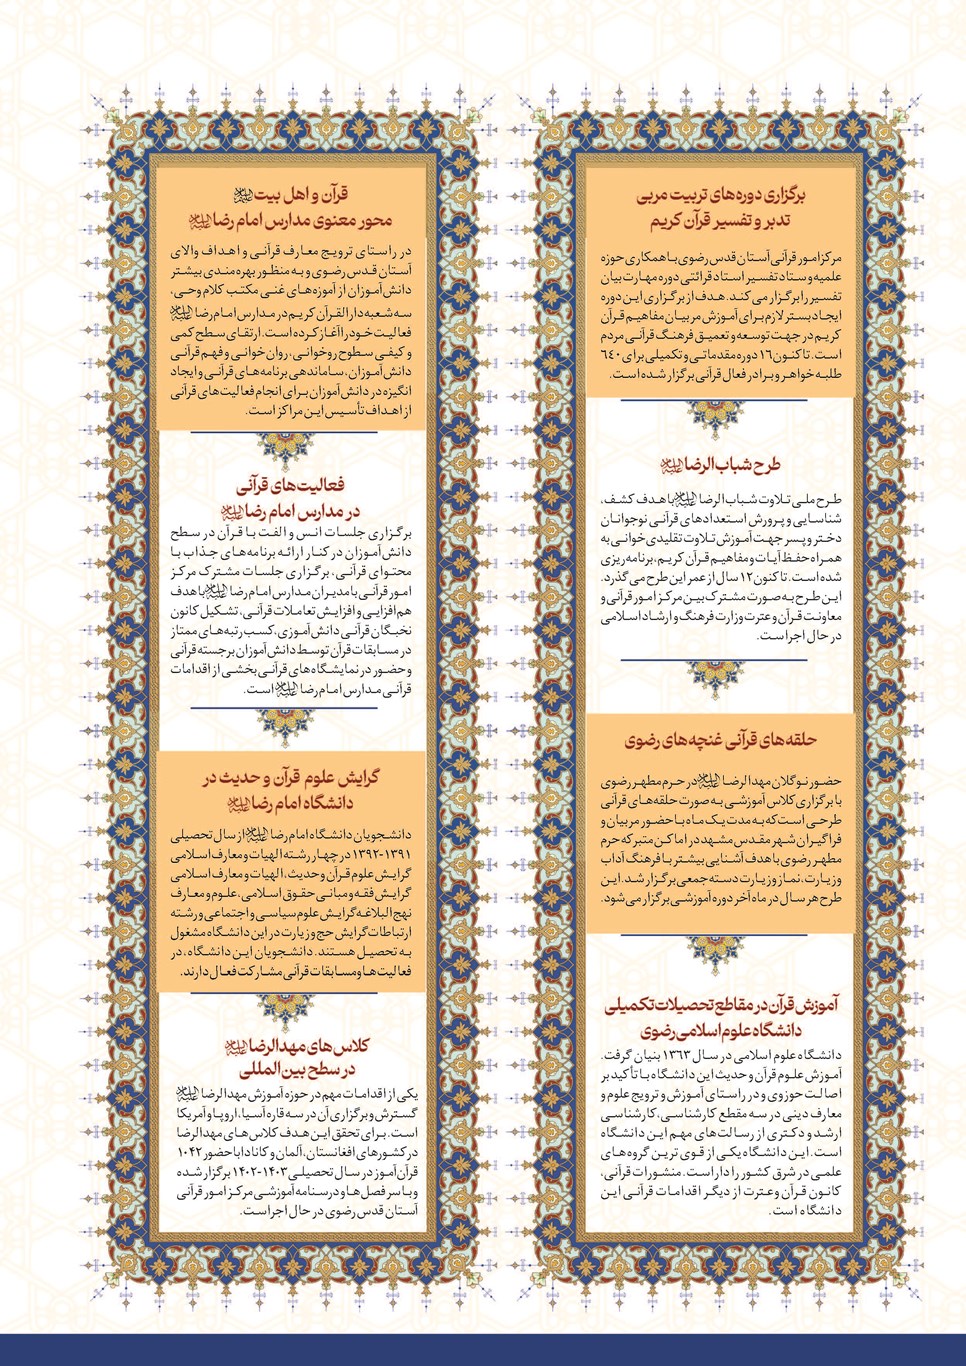 برگزاری دوره‌های تربیت مربی
تدبر و تفسیر قرآن کریم
مرکز امور قرآنی آستان قدس رضوی با همکاری حوزه
علمیه و ستاد تفسیر استاد قرائتی دوره مهارت بیان
تفسیر را برگزار می کند. هدف از برگزاری این دوره
ایجاد بستر لازم برای آموزش مربیان مفاهیم قرآن
کریم در جهت توسعه و تعمیق فرهنگ قرآنی مردم
است. تاکنون ۱۶ دوره مقدماتی و تکمیلی برای ۶۴۰
طلبه خواهر و برادر فعال قرآنی برگزار شده است.
طرح شباب الرضا علیه‌السلام
طرح ملی تلاوت شباب الرضا علیه‌السلام با هدف کشف،
شناسایی و پرورش استعدادهای قرآنی نوجوانان
دختر و پسر جهت آموزش تلاوت تقلیدی خوانی به
همراه حفظ آیات و مفاهیم قرآن کریم، برنامه‌ریزی
شده است. تاکنون ۱۲ سال از عمر این طرح می گذرد.
این طرح به صورت مشترک بین مرکز امور قرآنی و
معاونت قرآن و عترت وزارت فرهنگ و ارشاد اسلامی
در حال اجراست.
حلقه‌های قرآنی غنچه‌های رضوی
حضور نوگلان مهدالرضا علیه‌السلام در حرم مطهر رضوی
با برگزاری کلاس آموزشی به صورت حلقه‌های قرآنی
طرحی است که به مدت یک ماه با حضور مربیان و
فراگیران شهر مقدس مشهد در اماکن متبرکه حرم
مطهر رضوی با هدف آشنایی بیشتر با فرهنگ آداب
و زیارت، نماز و زیارت دسته جمعی برگزار شد. این
طرح هر سال در ماه آخر دوره آموزشی برگزار می‌شود.
آموزش قرآن در مقاطع تحصیلات تکمیلی
دانشگاه علوم اسلامی رضوی
دانشگاه علوم اسلامی در سال ۱۳۶۳ بنیان گرفت.
آموزش علوم قرآن و حدیث این دانشگاه با تأکید بر
اصالت حوزوی و در راستای آموزش و ترویج علوم و
معارف دینی در سه مقطع کارشناسی، کارشناسی
ارشد و دکتری از رسالت‌های مهم این دانشگاه
است. این دانشگاه یکی از قوی ترین گروه‌های
علمی در شرق کشور را دارا است. منشورات قرآنی،
کانون قرآن و عترت از دیگر اقدامات قرآنی این
دانشگاه است.
قرآن و اهل بیت علیهم‌السلام
محور معنوی مدارس امام رضا علیه‌السلام
در راستای ترویج معارف قرآنی و اهداف والای
آستان قدس رضوی و به منظور بهره‌مندی بیشتر
دانش‌آموزان از آموزه‌های غنی مکتب کلام وحی،
سه شعبه دارالقرآن کریم در مدارس امام رضا علیه‌السلام
فعالیت خود را آغاز کرده است. ارتقای سطح کمی
و کیفی سطوح روخوانی، روان‌خوانی و فهم قرآنی
دانش‌آموزان، ساماندهی برنامه‌های قرآنی و ایجاد
انگیزه در دانش آموزان برای انجام فعالیت‌های قرآنی
از اهداف تأسیس این مراکز است.
فعالیت‌های قرآنی
در مدارس امام رضا علیه‌السلام
برگزاری جلسات انس و الفت با قرآن در سطح
دانش‌آموزان در کنار ارائه برنامه‌های جذاب با
محتوای قرآنی، برگزاری جلسات مشترک مرکز
امور قرآنی با مدیران مدارس امام رضا علیه‌السلام با هدف
هم‌افزایی و افزایش تعاملات قرآنی، تشکیل کانون
نخبگان قرآنی دانش‌آموزی، کسب رتبه‌های ممتاز
در مسابقات قرآن توسط دانش‌آموزان برجسته قرآنی
و حضور در نمایشگاه‌های قرآنی بخشی از اقدامات
قرآنی مدارس امام رضا علیه‌السلام است.
گرایش علوم قرآن و حدیث در
دانشگاه امام رضا علیه‌السلام
دانشجویان دانشگاه امام رضا علیه‌السلام از سال تحصیلی
۱۳۹۱-۱۳۹۲ در چهار رشته الهیات و معارف اسلامی
گرایش علوم قرآن و حدیث، الهیات و معارف اسلامی
گرایش فقه و مبانی حقوق اسلامی، علوم و معارف
نهج البلاغه گرایش علوم سیاسی و اجتماعی و رشته
ارتباطات گرایش حج و زیارت در این دانشگاه مشغول
به تحصیل هستند. دانشجویان این دانشگاه، در
فعالیت‌ها و مسابقات قرآنی مشارکت فعال دارند.
کلاس‌های مهدالرضا علیه‌السلام
در سطح بین المللی
یکی از اقدامات مهم در حوزه آموزش مهدالرضا علیه‌السلام
گسترش و برگزاری آن در سه قاره آسیا، اروپا و آمریکا
است. برای تحقق این هدف کلاس‌های مهدالرضا
در کشورهای افغانستان، آلمان و کانادا با حضور ۱۰۴۲
قرآن‌آموز در سال تحصیلی ۱۴۰۳-۱۴۰۲ برگزار شده
و با سر فصل‌ها و درسنامه آموزشی مرکز امور قرآنی
آستان قدس رضوی در حال اجراست.